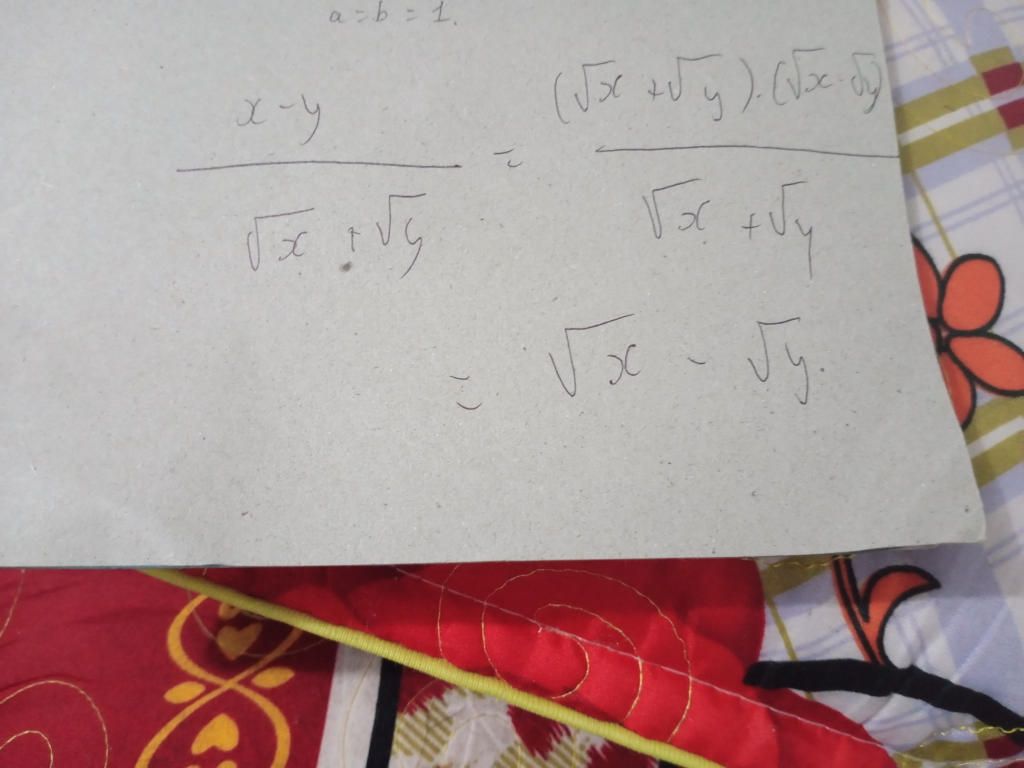 a = b = 1.
x - y / √x + √y = (√x + √y).(√x - √y) / √x + √y
= √x - √y.